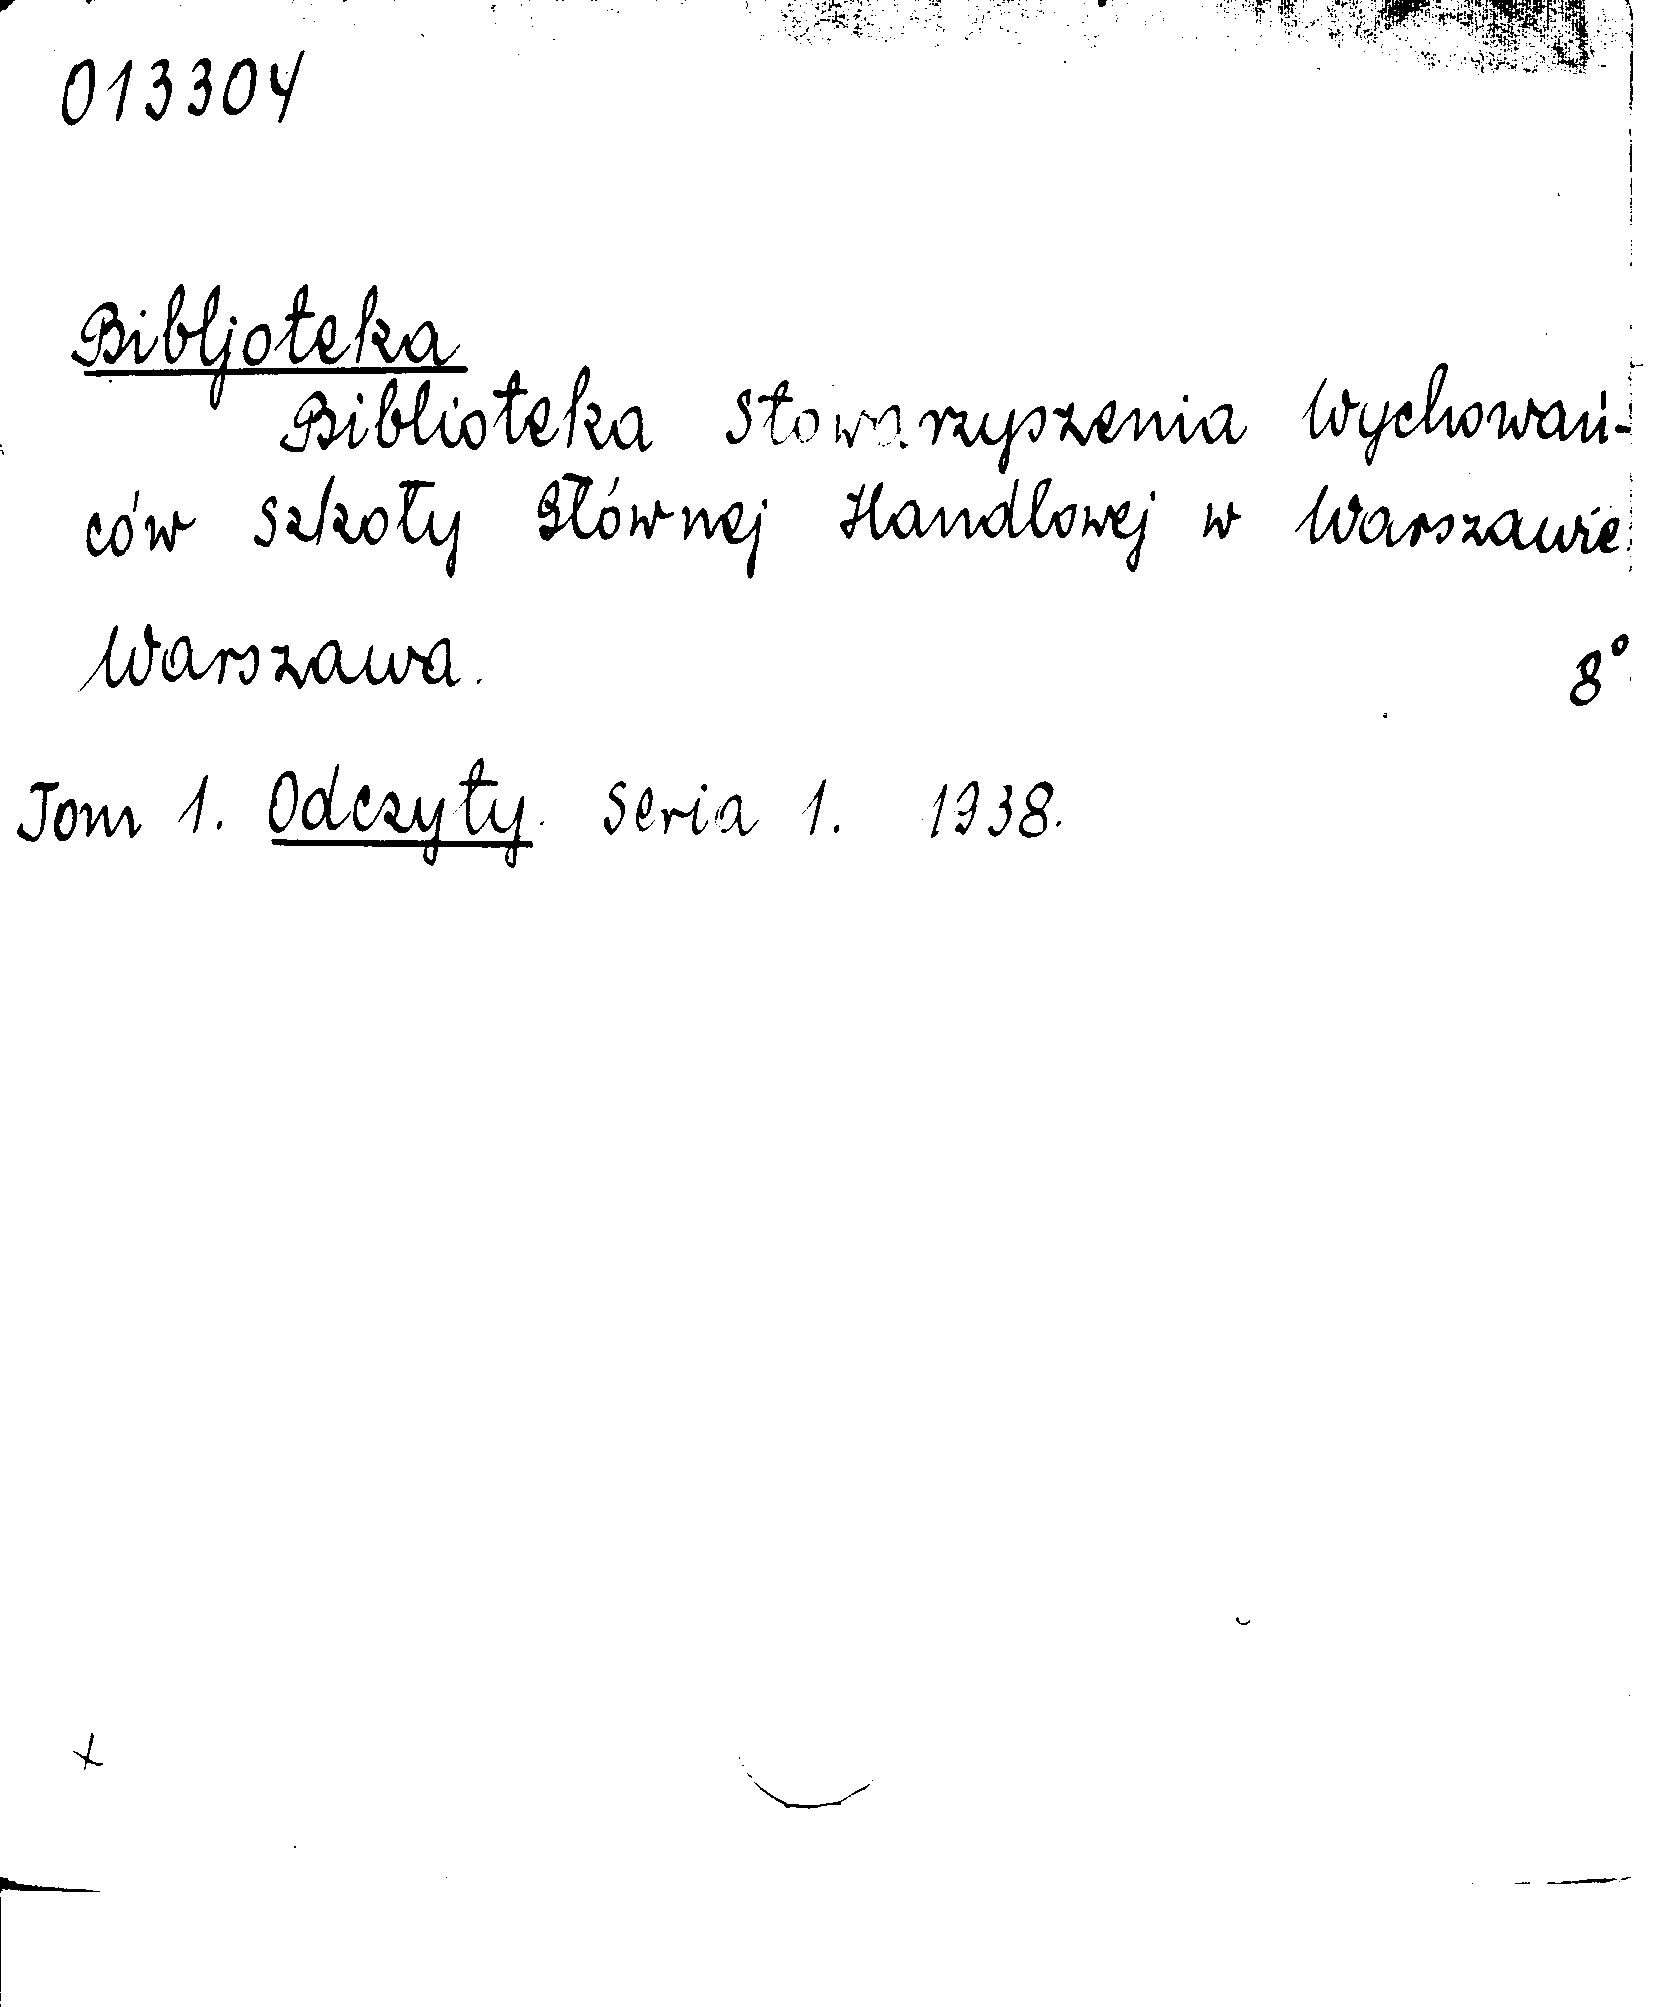 013304
Bibljoteka
Biblioteka Stowarzyszenia Wychowań-
ców Szkoły Głównej Handlowej w Warszawie.
Warszawa. 8°
Tom 1. Odczyty. Seria 1. 1938.